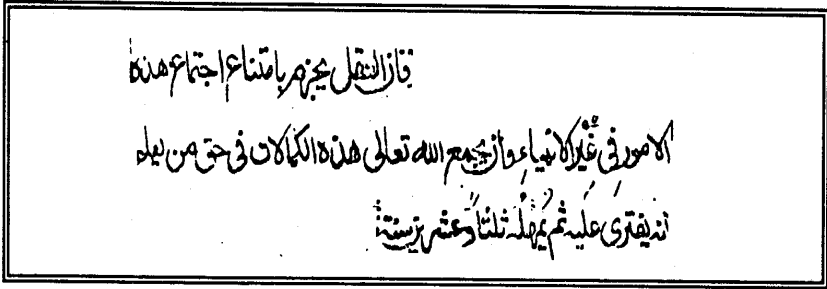 فان العقل يجزم بامتناع اجتماع هذه
الامور فى غير الانبياء وأن يجمع الله تعالى هذه الكمالات فى حق من يعلم
انه يفترى عليه ثم يمهله ثلثا وعشرين سنة